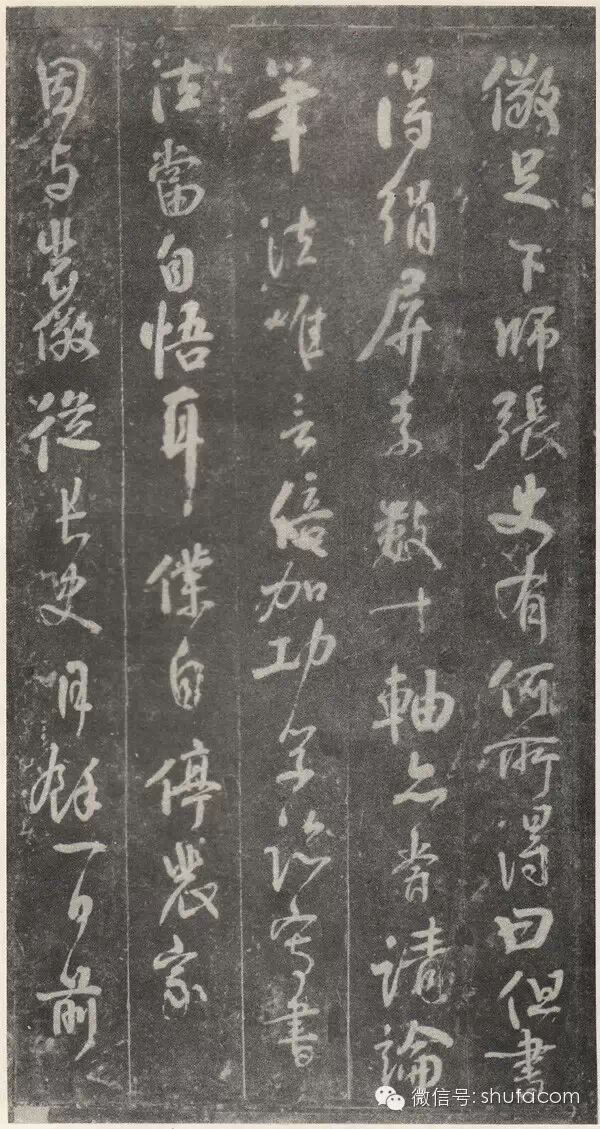 儆足下師張史有何所得曰但書
得絹屏素數十軸亦嘗請論
筆法惟言倍加功學臨寫書
法當自悟耳僕自停裴家
因与裴儆從長史月餘一日前
微信号: shufacom